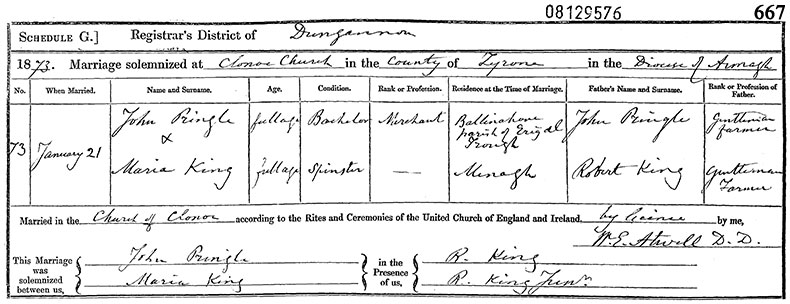 08129576 667
SCHEDULE G.] Registrar's District of Dungannon
1873. Marriage solemnized at Clonoe Church in the County of Tyrone in the Diocese of Armagh
No. When Married. Name and Surname. Age. Condition. Rank or Profession. Residence at the Time of Marriage. Father's Name and Surname. Rank or Profession of Father.
73 January 21 John Pringle full age Bachelor Merchant Ballinahone parish of Errigal Trough John Pringle Gentleman farmer
&
Maria King full age Spinster — Menagh Robert King Gentleman Farmer
Married in the Church of Clonoe according to the Rites and Ceremonies of the United Church of England and Ireland, by licence by me,
W. E. Atwell D. D.
This Marriage was solemnized between us, John Pringle Maria King in the Presence of us, R. King R. King Junr.